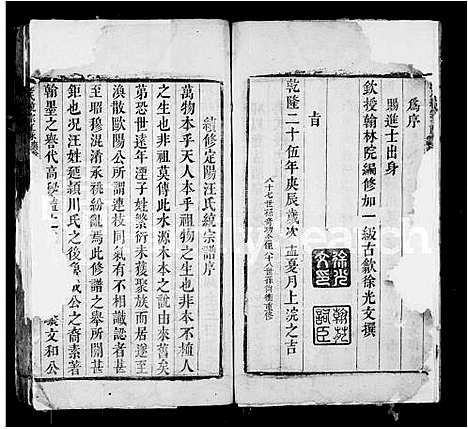 為序
賜進士出身
欽授翰林院編修加一級古歙徐光文撰
乾隆二十伍年庚辰歲次孟夏月上浣之吉
旨
徐光文印
翰苑詞臣
續修定陽汪氏統宗譜序
萬物本乎天人本乎祖物之生也非本不植人
之生也非祖莫傳此木本水源之說由來舊矣
第恐世遠年湮子姓繁衍未獲聚族而居遂至
渙散歐陽公所謂連枝同氣有不相識認者甚
至昭穆混淆承祧紛亂焉此修譜之舉所關甚
鉅也况汪姓延頴川氏之後
公之裔素著
翰墨之譽代高
文和公